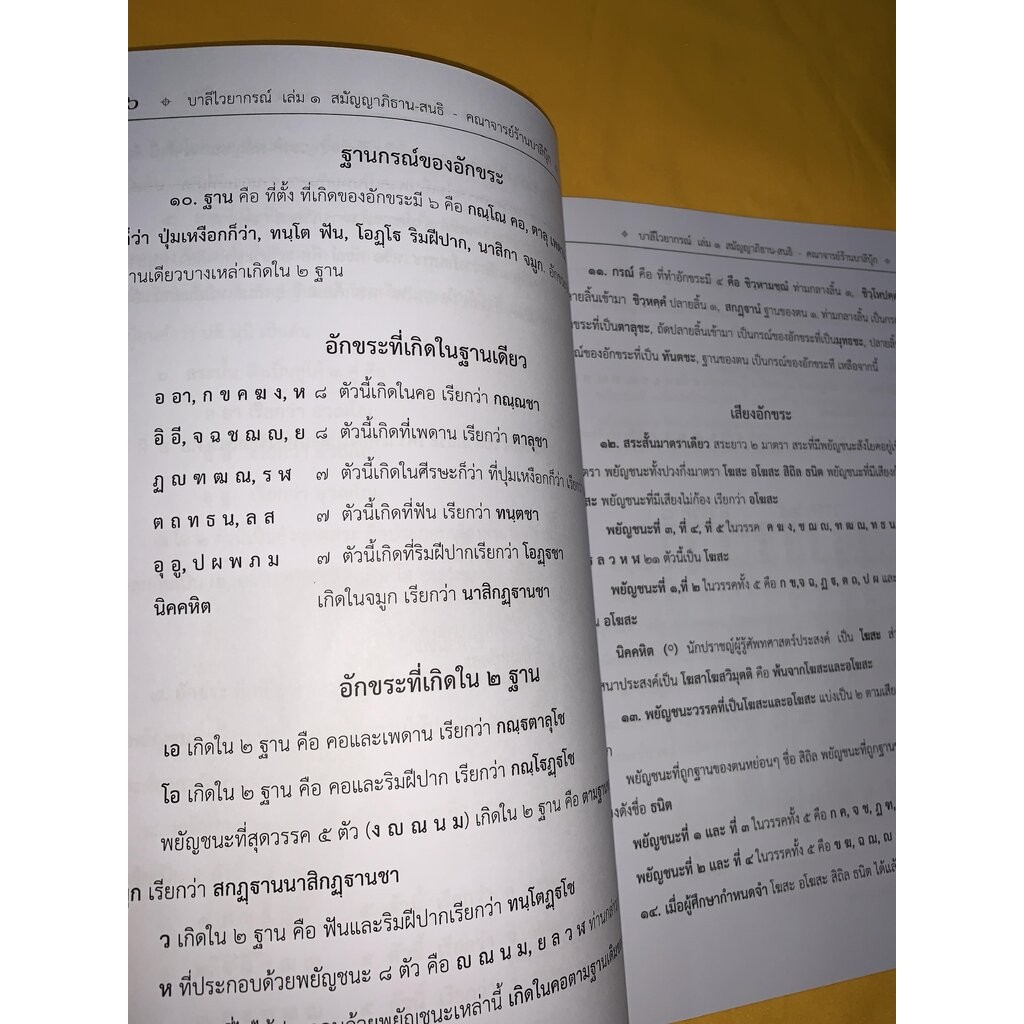 ๖ ⌖ บาลีไวยากรณ์ เล่ม ๑ สมัญญาภิธาน-สนธิ - คณาจารย์ร้านบาลีบุ๊ก
ฐานกรณ์ของอักขระ
๑๐. ฐาน คือ ที่ตั้ง ที่เกิดของอักขระมี ๖ คือ กณฺโฐ คอ, ตาลุ
ก็ว่า ปุ่มเหงือกก็ว่า, ทนฺโต ฟัน, โอฏฺโฐ ริมฝีปาก, นาสิกา จมูก.
ฐานเดียวบางเหล่าเกิดใน ๒ ฐาน
อักขระที่เกิดในฐานเดียว
อ อา, ก ข ค ฆ ง, ห ๘ ตัวนี้เกิดในคอ เรียกว่า กณฺฌชา
อิ อี, จ ฉ ช ฌ ญ, ย ๘ ตัวนี้เกิดที่เพดาน เรียกว่า ตาลุชา
ฏ ฌ ฑ ฒ ณ, ร ฬ ๗ ตัวนี้เกิดในศีรษะก็ว่า ที่ปุ่มเหงือกก็ว่า
ต ถ ท ธ น, ล ส ๗ ตัวนี้เกิดที่ฟัน เรียกว่า ทนฺตชา
อุ อู, ป ผ พ ภ ม ๗ ตัวนี้เกิดที่ริมฝีปากเรียกว่า โอฏฺฐชา
นิคคหิต เกิดในจมูก เรียกว่า นาสิกฏฺฐานชา
อักขระที่เกิดใน ๒ ฐาน
เอ เกิดใน ๒ ฐาน คือ คอและเพดาน เรียกว่า กณฺฐตาลุโช
โอ เกิดใน ๒ ฐาน คือ คอและริมฝีปาก เรียกว่า กณฺโฐฏฺฐโช
พยัญชนะที่สุดวรรค ๕ ตัว (ง ญ ณ น ม) เกิดใน ๒ ฐาน คือ
เรียกว่า สกฏฺฐานนาสิกฏฺฐานชา
ว เกิดใน ๒ ฐาน คือ ฟันและริมฝีปากเรียกว่า ทนฺโตฏฺฐโช
ห ที่ประกอบด้วยพยัญชนะ ๘ ตัว คือ ญ ณ น ม, ย ล ว ฬ
ด้วยพยัญชนะเหล่านี้ เกิดในคอตามฐานเดิม
⌖ บาลีไวยากรณ์ เล่ม ๑ สมัญญาภิธาน-สนธิ - คณาจารย์ร้านบาลีบุ๊ก ⌖
๑๑. กรณ์ คือ ที่ทำอักขระมี ๔ คือ ชิวฺหามชฺฌํ ท่ามกลางลิ้น ๑,
ปลายลิ้นเข้ามา ชิวฺหคฺคํ ปลายลิ้น ๑, สกฏฺฐานํ ฐานของตน ๑. ท่ามกลางลิ้น
ที่เป็นตาลุชะ, ถัดปลายลิ้นเข้ามา เป็นกรณ์ของอักขระที่เป็นมุทธชะ, ปลายลิ้น
ของอักขระที่เป็น ทันตชะ, ฐานของตน เป็นกรณ์ของอักขระที่ เหลือจากนี้
เสียงอักขระ
๑๒. สระสั้นมาตราเดียว สระยาว ๒ มาตรา สระที่มีพยัญชนะสังโยคอยู่
พยัญชนะทั้งปวงกึ่งมาตรา โฆสะ อโฆสะ สิถิล ธนิต พยัญชนะที่มีเสียง
พยัญชนะที่มีเสียงไม่ก้อง เรียกว่า อโฆสะ
พยัญชนะที่ ๓, ที่ ๔, ที่ ๕ ในวรรค ค ฆ ง, ช ฌ ญ, ฑ ฒ ณ, ท ธ น,
ร ล ว ห ฬ ๒๑ ตัวนี้เป็น โฆสะ
พยัญชนะที่ ๑,ที่ ๒ ในวรรคทั้ง ๕ คือ ก ข,จ ฉ, ฏ ฐ, ต ถ, ป ผ และ
อโฆสะ
นิคคหิต (ํ) นักปราชญ์ผู้รู้ศัพทศาสตร์ประสงค์ เป็น โฆสะ
ประสงค์เป็น โฆสาโฆสวิมุตติ คือ พ้นจากโฆสะและอโฆสะ
๑๓. พยัญชนะวรรคที่เป็นโฆสะและอโฆสะ แบ่งเป็น ๒ ตาม
พยัญชนะที่ถูกฐานของตนหย่อนๆ ชื่อ สิถิล พยัญชนะที่ถูกฐาน
ชื่อ ธนิต
พยัญชนะที่ ๑ และ ที่ ๓ ในวรรคทั้ง ๕ คือ ก ค, จ ช, ฏ ฑ,
พยัญชนะที่ ๒ และ ที่ ๔ ในวรรคทั้ง ๕ คือ ข ฆ, ฉ ฌ,
๑๔. เมื่อผู้ศึกษากำหนดจำ โฆสะ อโฆสะ สิถิล ธนิต ได้แล้ว